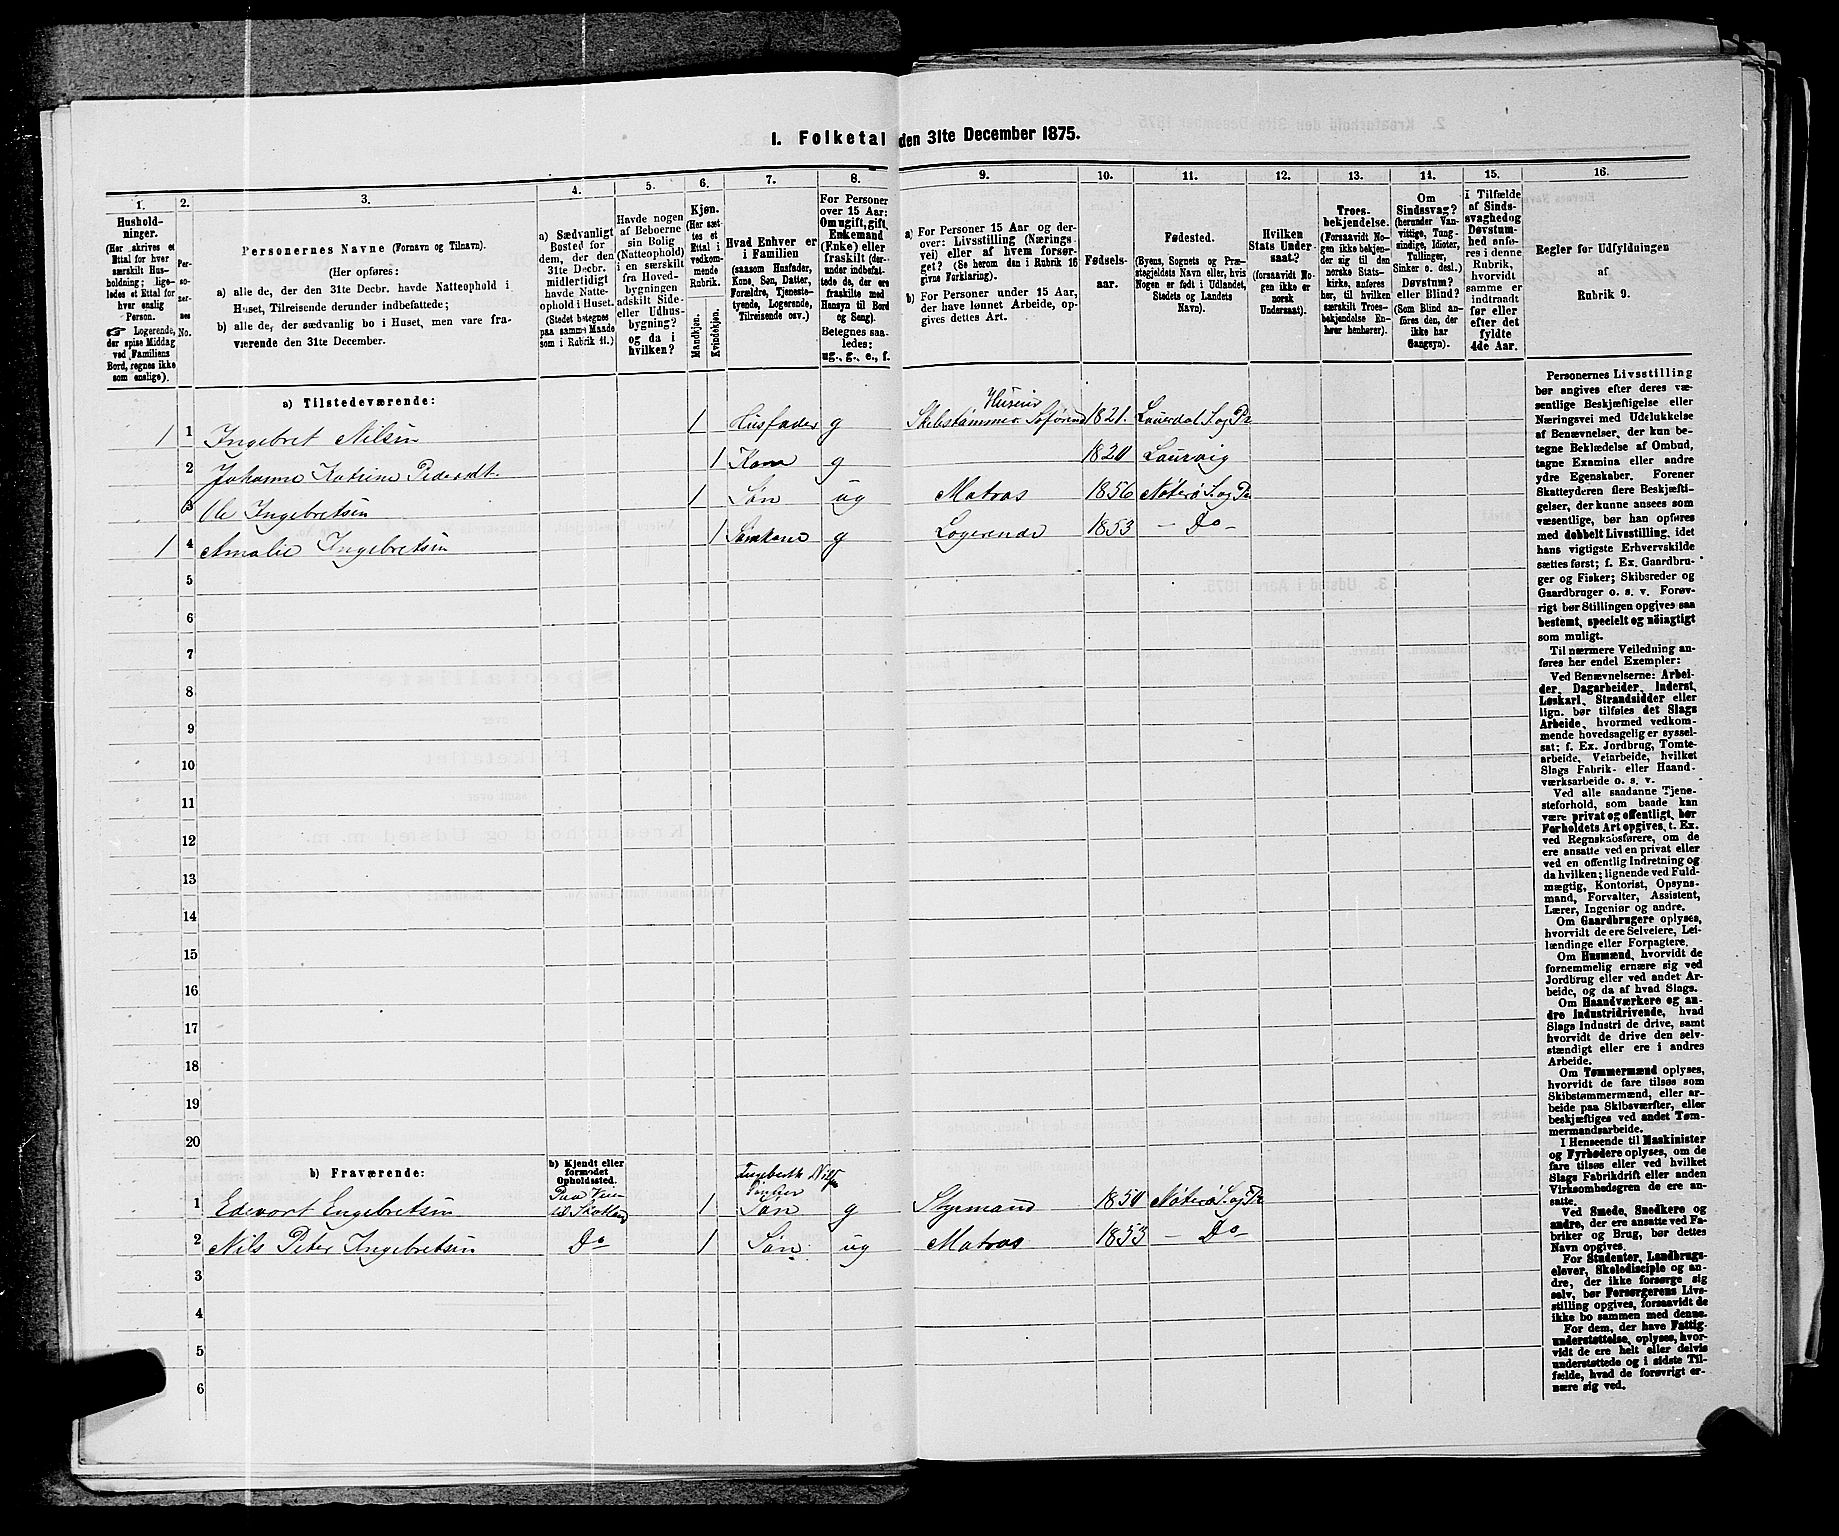 1. Folketal den 31te December 1875.
1. 2. 3. 4. 5. 6. 7. 8. 9. 10. 11. 12. 13. 14. 15. 16.
Hushold-
ninger.
(Her skrives et
Ettal for hver
særskilt Hus-
holdning; lige-
ledes et Ettal for
hver enslig
Person.
☞ Logerende,
der spise Middag
ved Familiens
Bord, regnes ikke
som enslige).
Per-
so-
ner-
nes
No.
Personernes Navne (Fornavn og Tilnavn).
(Her opføres:
a) alle de, der den 31te Decbr. havde Natteophold i
Huset, Tilreisende derunder indbefattede;
b) alle de, der sædvanlig bo i Huset, men vare fra-
værende den 31te December.
a) Sædvanligt
Bosted for
dem, der den
31te Decbr.
midlertidigt
havde Natte-
ophold i Huset.
(Stedet betegnes
paa samme Maade
som i Rubrik 11.)
Havde nogen
af Beboerne
sin Bolig
(Natteophold)
i en særskilt
fra Hoved-
bygningen
adskilt Side-
eller Udhus-
bygning?
og da i
hvilken?
Kjøn.
(Her sæt-
tes et
Ettal i
vedkom-
mende
Rubrik.
Mandkjøn.
Kvindekjøn.
Hvad Enhver er
i Familien
(saasom Husfader,
Kone, Søn, Datter,
Forældre, Tjeneste-
tyende, Logerende,
Tilreisende osv.)
For Personer
over 15 Aar:
Om ugift, gift,
Enkemand
(Enke) eller
fraskilt (der-
under indbefat-
tede de, der ere
fraskilte med
Hensyn til Bord
og Seng).
Betegnes saa-
ledes:
ug., g., e., f.
a) For Personer 15 Aar og der-
over: Livsstilling (Nærings-
vei) eller af hvem forsør-
get? (Se herom den i Rubrik 16
givne Forklaring).
b) For Personer under 15 Aar,
der have lønnet Arbeide, op-
gives dettes Art.
Fødsels-
aar.
Fødested.
(Byens, Sognets og Præ-
stegjeldets Navn eller, hvis
Nogen er født i Udlandet,
Stedets og Landets
Navn).
Hvilken
Stats Under-
saat?
(forsaavidt No-
gen ikke er
norsk
Undersaat).
Troes-
bekjendelse.
(Forsaavidt No-
gen ikke bekjen-
der sig til den
norske Stats-
kirke, anføres
her, til hvilken
særskilt Troes-
bekjendelse En-
hver henhører).
Om
Sindssvag?
(herunder Van-
vittige, Tung-
sindige, Idioter,
Tullinger,
Sinker o. desl.)
Døvstum?
eller Blind?
(Som Blind an-
føres den, der
ikke har
Gangsyn).
I Tilfælde
af Sinds-
svaghed og
Døvstum-
hed anfø-
res i denne
Rubrik,
hvorvidt
samme er
indtraadt
før eller
efter det
fyldte
4de Aar.
Regler før Udfyldningen
af
Rubrik 9.
a) Tilstedeværende:
1 1 Ingebret Nilsen 1 Husfader g Skibstømmer 1821. S. og Pr
2 Johanne Katrine Pedersdt. 1 Kone g 1820 Laurvig
3 Ole Ingebretsen 1 Søn ug Matros 1856 Nøterø S. og Pr
1 4 Amalie Ingebretsen 1 g Logerende 1853 — Do —
5
6
7
8
9
10
11
12
13
14
15
16
17
18
19
20
b) Fraværende:
b) Kjendt eller
formodet
Opholdssted.
1 Edevart Engebretsen 1 Søn g Styrmand 1850 Nøterø S. og Pr
2 Nils Peter Ingebretsen Do 1 Søn ug Matros 1853 — Do —
3
4
5
6
Personernes Livsstilling
bør angives efter deres væ-
sentlige Beskjæftigelse eller
Næringsvei med Udelukkelse
af Benævnelser, der kun be-
tegne Beklædelse af Ombud,
tagne Examina eller andre
ydre Egenskaber. Forener
Skatteyderen flere Beskjæfti-
gelser, der kunne ansees som
væsentlige, bør han opføres
med dobbelt Livsstilling, idet
hans vigtigste Erhvervskilde
sættes først; f. Ex. Gaardbru-
ger og Fisker; Skibsreder og
Gaardbruger o. s. v. Forøv-
rigt bør Stillingen opgives saa
bestemt, specielt og nöiagtigt
som muligt.
Til nærmere Veiledning an-
føres her endel Exempler:
Ved Benævnelserne: Arbei-
der, Dagarbeider, Inderst,
Løskarl, Strandsidder eller
lign. bør tilføies det Slags
Arbeide, hvormed vedkom-
mende hovedsagelig er syssel-
sat; f. Ex. Jordbrug, Tomte-
arbeide, Veiarbeide, hvilket
Slags Fabrik- eller Haand-
værksarbeide o. s. v.
Ved alle saadanne Tjene-
steforhold, som baade kan
være privat og offentligt, bør
Forholdets Art opgives, t. Ex.
ved Regnskabsførere, om de
ere ansatte ved en privat eller
ved en offentlig Indretning og
da hvilken; lignende ved Fuld-
mægtig, Kontorist, Opsyns-
mand, Forvalter, Assistent,
Lærer, Ingeniør og andre.
Om Gaardbrugere oplyses,
hvorvidt de ere Selveiere, Lei-
lændinge eller Forpagtere.
Om Husmænd, hvorvidt de
fornemmelig ernære sig ved
Jordbrug eller ved andet Ar-
beide, og da af hvad Slags.
Om Haandværkere og an-
dre Industridrivende, hvad
Slags Industri de drive, samt
hvorvidt de drive den selv-
stændigt eller ere i andres
Arbeide.
Om Tømmermænd oplyses,
hvorvidt de fare tilsøs som
Skibstømmermænd, eller ar-
beide paa Skibsværfter, eller
beskjæftiges ved andet Tøm-
mermandsarbeide.
I Henseende til Maskinister
og Fyrbødere oplyses, om de
fare tilsøs eller ved hvilket
Slags Fabrikdrift eller anden
Virksomhedsgren de ere an-
satte.
Ved Smede, Snedkere og
andre, der ere ansatte ved Fa-
briker og Brug, bør dettes
Navn opgives.
For Studenter, Landbrugs-
elever, Skoledisciple og an-
dre, der ikke forsørge sig
selv, bør Forsørgerens Livs-
stilling opgives, forsaavidt de
ikke bo sammen med denne.
For dem, der have Fattig-
understøttelse, oplyses, hvor-
vidt de ere helt eller delvis
understøttede og i sidste Til-
fælde, hvad de forøvrigt er-
nære sig ved.